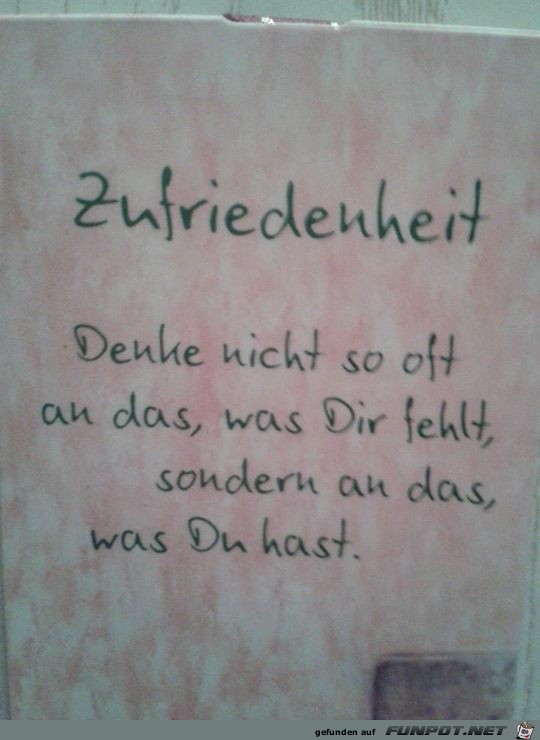 Zufriedenheit
Denke nicht so oft
an das, was Dir fehlt,
sondern an das,
was Du hast.
gefunden auf FUNPOT.NET